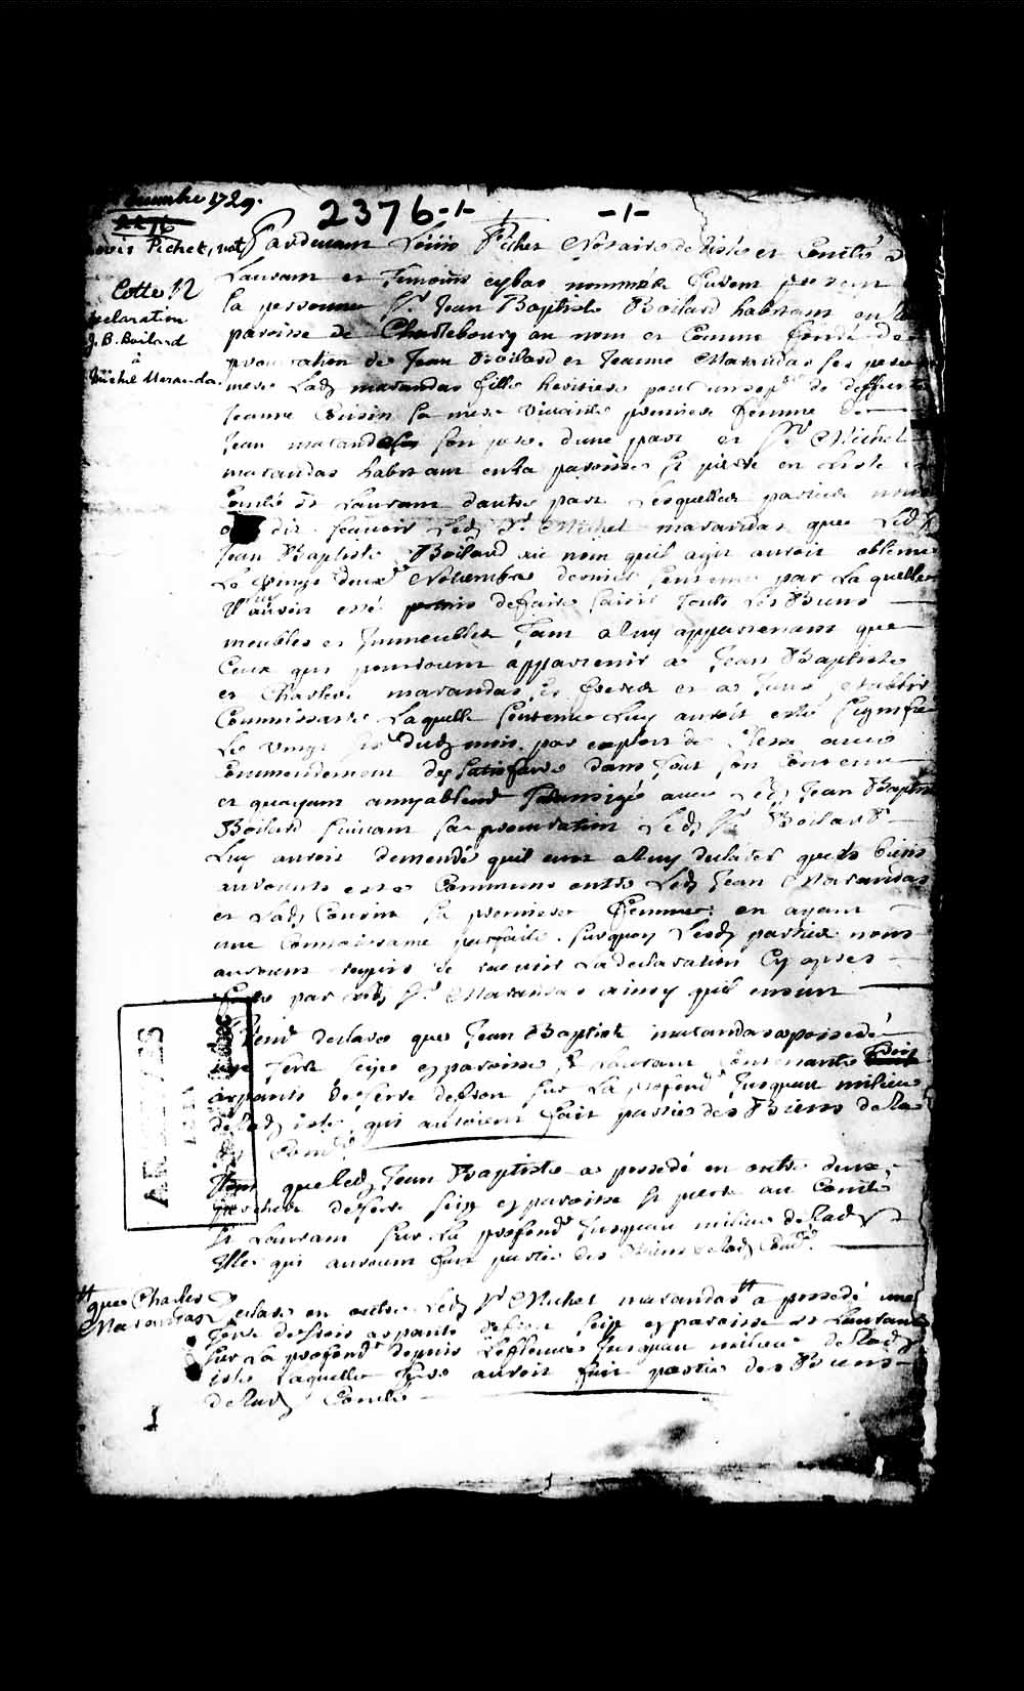 2376-1-
-1-
1729.
Louis Pichet, not
Cotte 12
Declaration
J. B. Boilard
à
Michel Maranda.
Pardevant Louis Pichet Notaire de liste et Comté de
Laurant et temoins cy bas nommés furent present
la personne Sr Jean Baptiste Boilard habitant en la
paroisse de Charlebourg au nom et Comme fondé de
procuration de Jean Boilard et Jeanne Marandas ses pere
mere Ladt marandas fille heritiere pour un de deffunte
Jeanne Cousin sa mere vivante premiere femme de
Jean marandas son pere. dune part et Sr Michel
marandas habitant en la paroisse St pierre en Lisle et
Comté St Laurant dautre part Lesquelles parties nous
ont dit scavoir Ledt Sr Michel marandas que Ledt
Jean Baptiste Boilard au nom quil agit auroit obtenu
Le vingt deux Novembre dernier sentence par Laquelle
Il auroit esté permis de faire saisir touts Les Biens
meubles et Immeubles tant a luy appartenant que
Ceux qui pourroient appartenir a Jean Baptiste
et Charles marandas ses freres et a Iceux, etablir
Commissaire Laquelle sentence Luy auroit esté signifié
Le vingt six dudt mois par exploit de avec
Commandement dy satisfaire dans tout son Contenu
et quayant amyablement transigé avec Ledt Jean Baptiste
Boilard suivant sa procuration Ledt Sr Boilard
Luy auroit demandé quil eut a luy declarer quels biens
auroients estés Communs entre Ledt Jean Marandas
et Ladt Cousin sa premiere femme: en ayant
une Connoissance parfaite. surquoy Lesdt parties nous
auroient requis de recevoir La declaration Cy apres
faite par Ledt Sr Marandas ainsy quil ensuit
Premt declare que Jean Baptiste marandas a possedé
une Terre scize ezparoisse St Laurant Contenante
arpants de terre de front sur La profondr Jusquau milieu
de Ladt isle, qui auroient fait partie des Biens de La
dt Comté
Item que Ledt Jean Baptiste a possedé en outre deux
perches de terre scize ezparoisse St pierre au Comté
St Laurant sur La profondr Jusquau milieu de Ladt
Isle qui auroient fait partie des Biens de Ladt Comté.
que Charles
Marandas
Declare en outre Ledt Sr Michel marandas a possedé une
Terre de trois arpants de front scize ezparoisse St Laurant
sur La profondr depuis Le fleuve Jusquau milieu de Ladt
isle Laquelle Terre auroit fait partie des Biens
de Ladt Comté
1
ARCHIVES